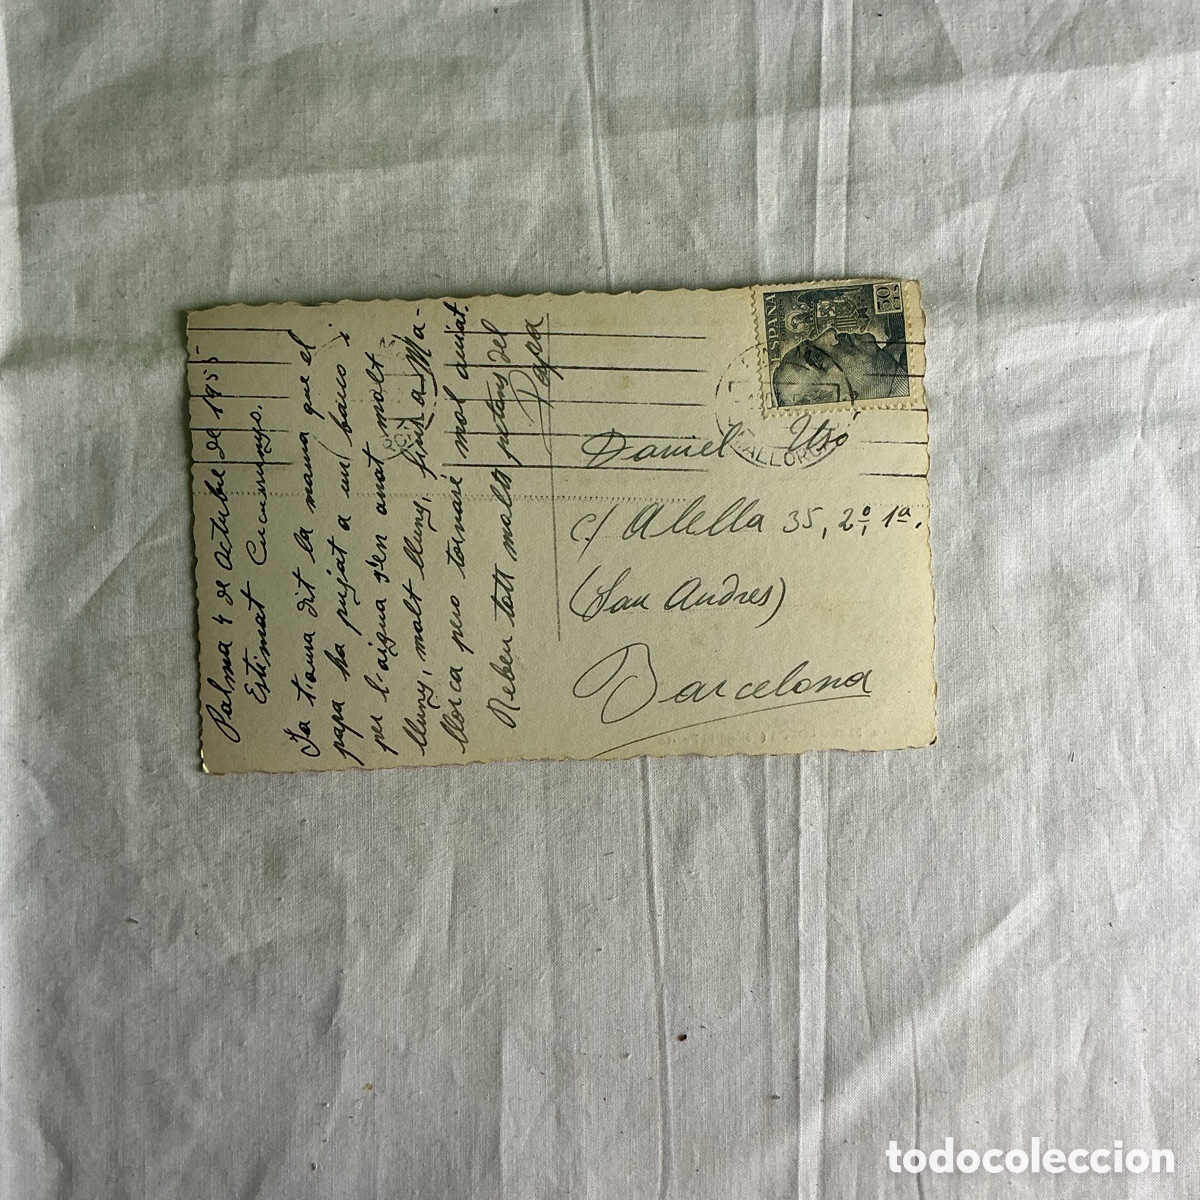 Palma 4 de Octubre de 1955
Estimat
Ja t'aura dit la mama que el
papa ha pujat a un barco i
per l'aigua s'en anat molt
lluny, molt lluny, fins a Ma-
llorca pero tornaré mol aviat.
Reben tots molts petons del
Papa
ESPAÑA
50 CTS
MALLORCA
Daniel Usó
c/ Alella 35, 2º, 1ª.
(San Andres)
Barcelona
todocoleccion